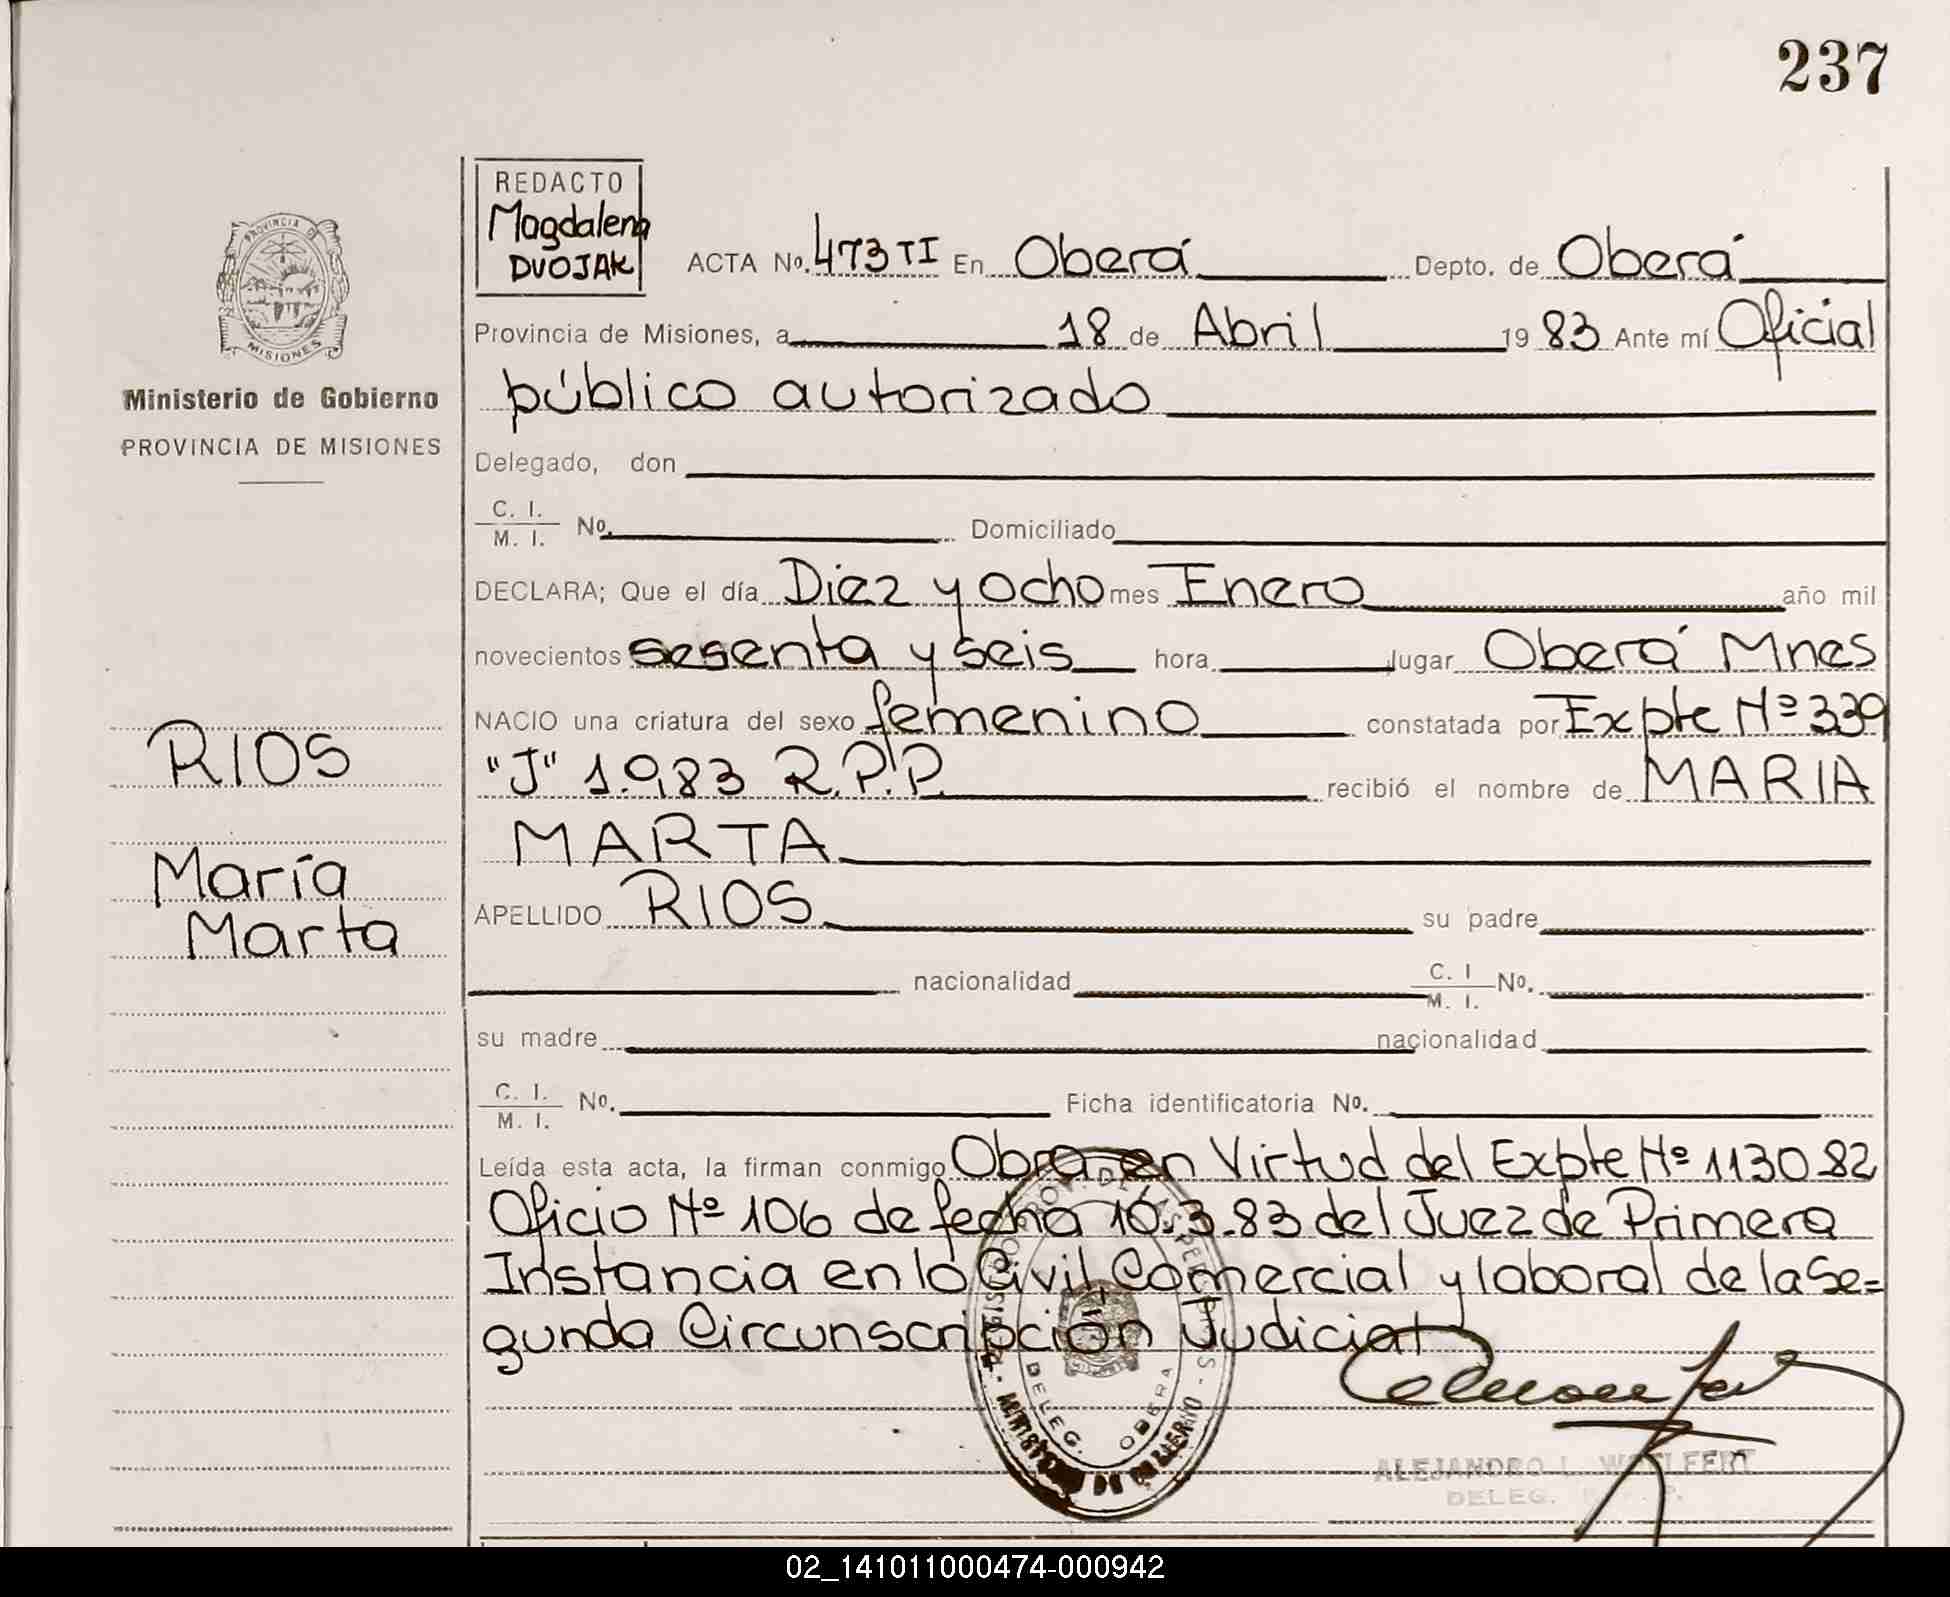 237
REDACTO
Magdalena
DVOJAK
PROVINCIA DE
MISIONES
Ministerio de Gobierno
PROVINCIA DE MISIONES
RIOS
María
Marta
ACTA No. 473 TI En Oberá Depto. de Oberá
Provincia de Misiones, a 18 de Abril 19 83 Ante mí Oficial
público autorizado
Delegado, don
C. I.
M. I. No. Domiciliado
DECLARA; Que el día Diez y Ocho mes Enero año mil
novecientos sesenta y seis hora lugar Oberá Mnes
NACIO una criatura del sexo femenino constatada por Expte Nº 339
"J" 1.983 R.P.P. recibió el nombre de MARIA
MARTA
APELLIDO RIOS su padre
nacionalidad C. I
M. I. No.
su madre nacionalidad
C. I.
M. I. No. Ficha identificatoria No.
Leída esta acta, la firman conmigo Obra en Virtud del Expte Nº 1130 82
Oficio Nº 106 de fecha 10.3.83 del Juez de Primera
Instancia en lo Civil Comercial y laboral de la Se=
gunda Circunscripción Judicial
DELEG. OBERA
ALEJANDRO L. WOELFERT
DELEG.
02_141011000474-000942